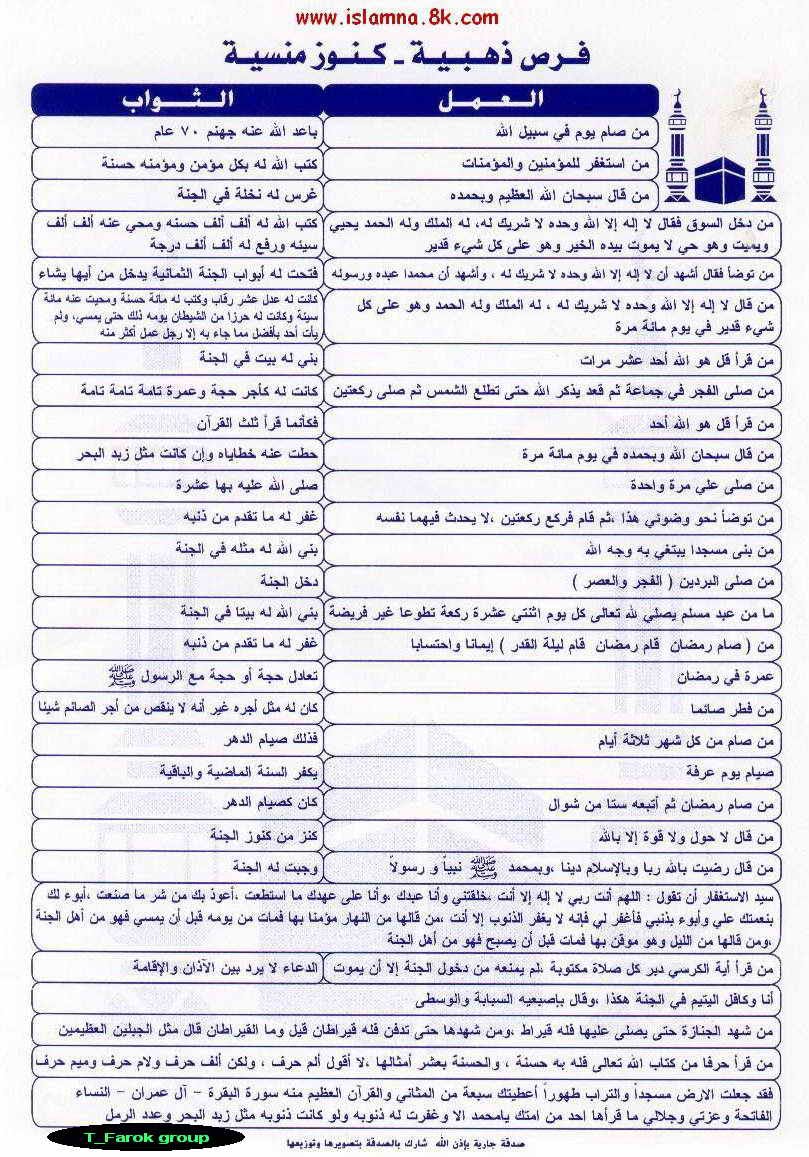 www.islamna.8k.com
فرص ذهبية - كنوز منسية
العمل الثواب
من صام يوم في سبيل الله باعد الله عنه جهنم ٧٠ عام
من استغفر للمؤمنين والمؤمنات كتب الله له بكل مؤمن ومؤمنه حسنة
من قال سبحان الله العظيم وبحمده غرس له نخلة في الجنة
من دخل السوق فقال لا إله إلا الله وحده لا شريك له، له الملك وله الحمد يحيي
ويميت وهو حي لا يموت بيده الخير وهو على كل شيء قدير
كتب الله له ألف ألف حسنه ومحي عنه ألف ألف
سيئه ورفع له ألف ألف درجة
من توضأ فقال أشهد أن لا إله إلا الله وحده لا شريك له ، وأشهد أن محمدا عبده ورسوله فتحت له أبواب الجنة الثمانية يدخل من أيها يشاء
من قال لا إله إلا الله وحده لا شريك له ، له الملك وله الحمد وهو على كل
شيء قدير في يوم مائة مرة
كانت له عدل عشر رقاب وكتب له مائة حسنة ومحيت عنه مائة
سيئة وكانت له حرزا من الشيطان يومه ذلك حتى يمسي، ولم
يأت أحد بأفضل مما جاء به إلا رجل عمل أكثر منه
من قرأ قل هو الله أحد عشر مرات بني له بيت في الجنة
من صلى الفجر في جماعة ثم قعد يذكر الله حتى تطلع الشمس ثم صلى ركعتين كانت له كأجر حجة وعمرة تامة تامة تامة
من قرأ قل هو الله أحد فكأنما قرأ ثلث القرآن
من قال سبحان الله وبحمده في يوم مائة مرة حطت عنه خطاياه وإن كانت مثل زبد البحر
من صلى علي مرة واحدة صلى الله عليه بها عشرة
من توضأ نحو وضوئي هذا ،ثم قام فركع ركعتين ،لا يحدث فيهما نفسه غفر له ما تقدم من ذنبه
من بنى مسجدا يبتغي به وجه الله بني الله له مثله في الجنة
من صلى البردين ( الفجر والعصر ) دخل الجنة
ما من عبد مسلم يصلي لله تعالى كل يوم اثنتي عشرة ركعة تطوعا غير فريضة بني الله له بيتا في الجنة
من ( صام رمضان قام رمضان قام ليلة القدر ) إيمانا واحتسابا غفر له ما تقدم من ذنبه
عمرة في رمضان تعادل حجة أو حجة مع الرسول ﷺ
من فطر صائما كان له مثل أجره غير أنه لا ينقص من أجر الصائم شيئا
من صام من كل شهر ثلاثة أيام فذلك صيام الدهر
صيام يوم عرفة يكفر السنة الماضية والباقية
من صام رمضان ثم أتبعه ستا من شوال كان كصيام الدهر
من قال لا حول ولا قوة إلا بالله كنز من كنوز الجنة
من قال رضيت بالله ربا وبالإسلام دينا ،وبمحمد ﷺ نبياً و رسولاً وجبت له الجنة
سيد الاستغفار أن تقول : اللهم أنت ربي لا إله إلا أنت ،خلقتني وأنا عبدك ،وأنا على عهدك ما استطعت ،أعوذ بك من شر ما صنعت ،أبوء لك
بنعمتك علي وأبوء بذنبي فأغفر لي فإنه لا يغفر الذنوب إلا أنت ،من قالها من النهار مؤمنا بها فمات من يومه قبل أن يمسي فهو من أهل الجنة
،ومن قالها من الليل وهو موقن بها فمات قبل أن يصبح فهو من أهل الجنة
من قرأ أية الكرسي دبر كل صلاة مكتوبة ،لم يمنعه من دخول الجنة إلا أن يموت الدعاء لا يرد بين الآذان والإقامة
أنا وكافل اليتيم في الجنة هكذا ،وقال بإصبعيه السبابة والوسطى
من شهد الجنازة حتى يصلى عليها فله قيراط ،ومن شهدها حتى تدفن فله قيراطان قيل وما القيراطان قال مثل الجبلين العظيمين
من قرأ حرفا من كتاب الله تعالى فله به حسنة ، والحسنة بعشر أمثالها ،لا أقول ألم حرف ، ولكن ألف حرف ولام حرف وميم حرف
فقد جعلت الارض مسجداً والتراب طهوراً أعطيتك سبعة من المثاني والقرآن العظيم منه سورة البقرة – آل عمران – النساء
الفاتحة وعزتي وجلالي ما قرأها احد من امتك يامحمد الا وغفرت له ذنوبه ولو كانت ذنوبه مثل زبد البحر وعدد الرمل
صدقة جارية بإذن الله شارك بالصدقة بتصويرها وتوزيعها
T_Farok group